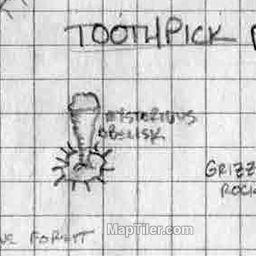 TOOTHPICK
MYSTERIOUS
OBELISK
GRIZZ
ROCK
FOREST
MapTiler.com